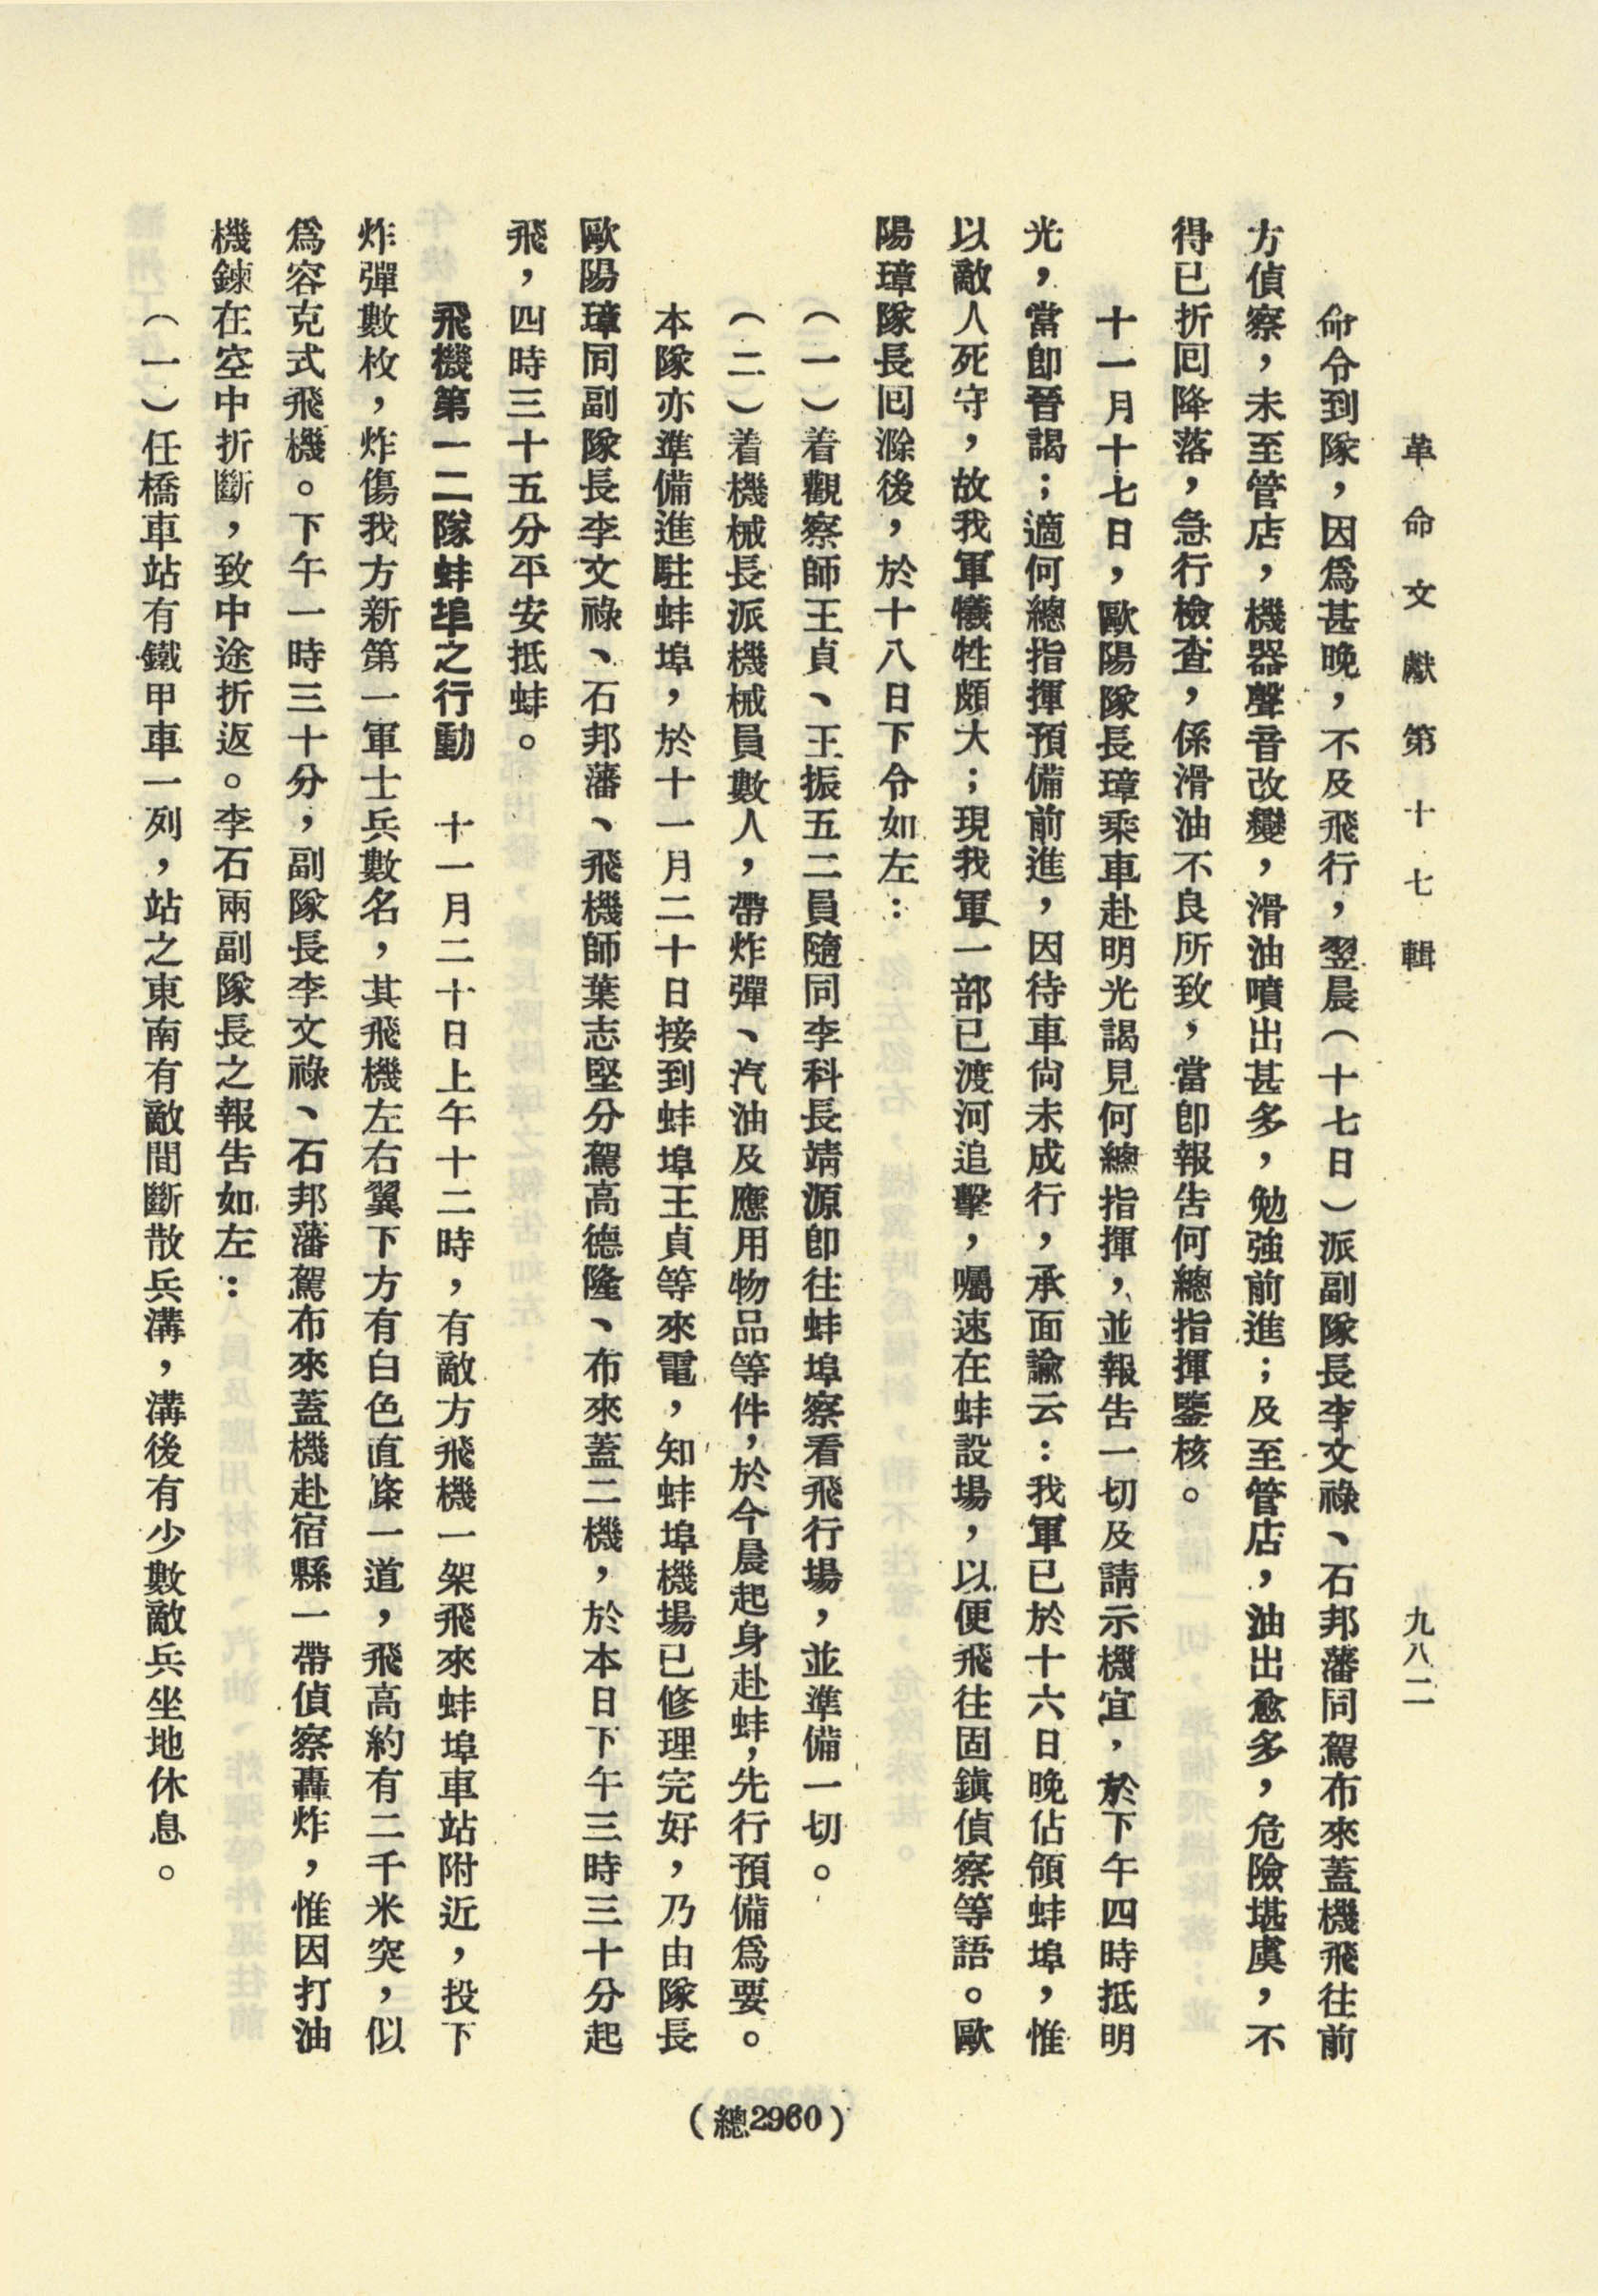 革命文獻第十七輯
九八二
命令到隊，因爲甚晚，不及飛行，翌晨（十七日）派副隊長李文祿、石邦藩同駕布來蓋機飛往前
方偵察，未至管店，機器聲音改變，滑油噴出甚多，勉強前進；及至管店，油出愈多，危險堪虞，不
得已折回降落，急行檢查，係滑油不良所致，當卽報告何總指揮鑒核。
十一月十七日，歐陽隊長璋乘車赴明光謁見何總指揮，並報告一切及請示機宜，於下午四時抵明
光，當卽晉謁；適何總指揮預備前進，因待車尙未成行，承面諭云：我軍已於十六日晚佔領蚌埠，惟
以敵人死守，故我軍犧牲頗大；現我軍一部已渡河追擊，囑速在蚌設場，以便飛往固鎮偵察等語。歐
陽璋隊長回滁後，於十八日下令如左：
（一）着觀察師王貞、王振五二員隨同李科長靖源卽往蚌埠察看飛行場，並準備一切。
（二）着機械長派機械員數人，帶炸彈、汽油及應用物品等件，於今晨起身赴蚌，先行預備爲要。
本隊亦準備進駐蚌埠，於十一月二十日接到蚌埠王貞等來電，知蚌埠機場已修理完好，乃由隊長
歐陽璋同副隊長李文祿、石邦藩、飛機師葉志堅分駕高德隆、布來蓋二機，於本日下午三時三十分起
飛，四時三十五分平安抵蚌。
飛機第一二隊蚌埠之行動　十一月二十日上午十二時，有敵方飛機一架飛來蚌埠車站附近，投下
炸彈數枚，炸傷我方新第一軍士兵數名，其飛機左右翼下方有白色直條一道，飛高約有二千米突，似
爲容克式飛機。下午一時三十分，副隊長李文祿、石邦藩駕布來蓋機赴宿縣一帶偵察轟炸，惟因打油
機鍊在空中折斷，致中途折返。李石兩副隊長之報告如左：
（一）任橋車站有鐵甲車一列，站之東南有敵間斷散兵溝，溝後有少數敵兵坐地休息。
（總2960）